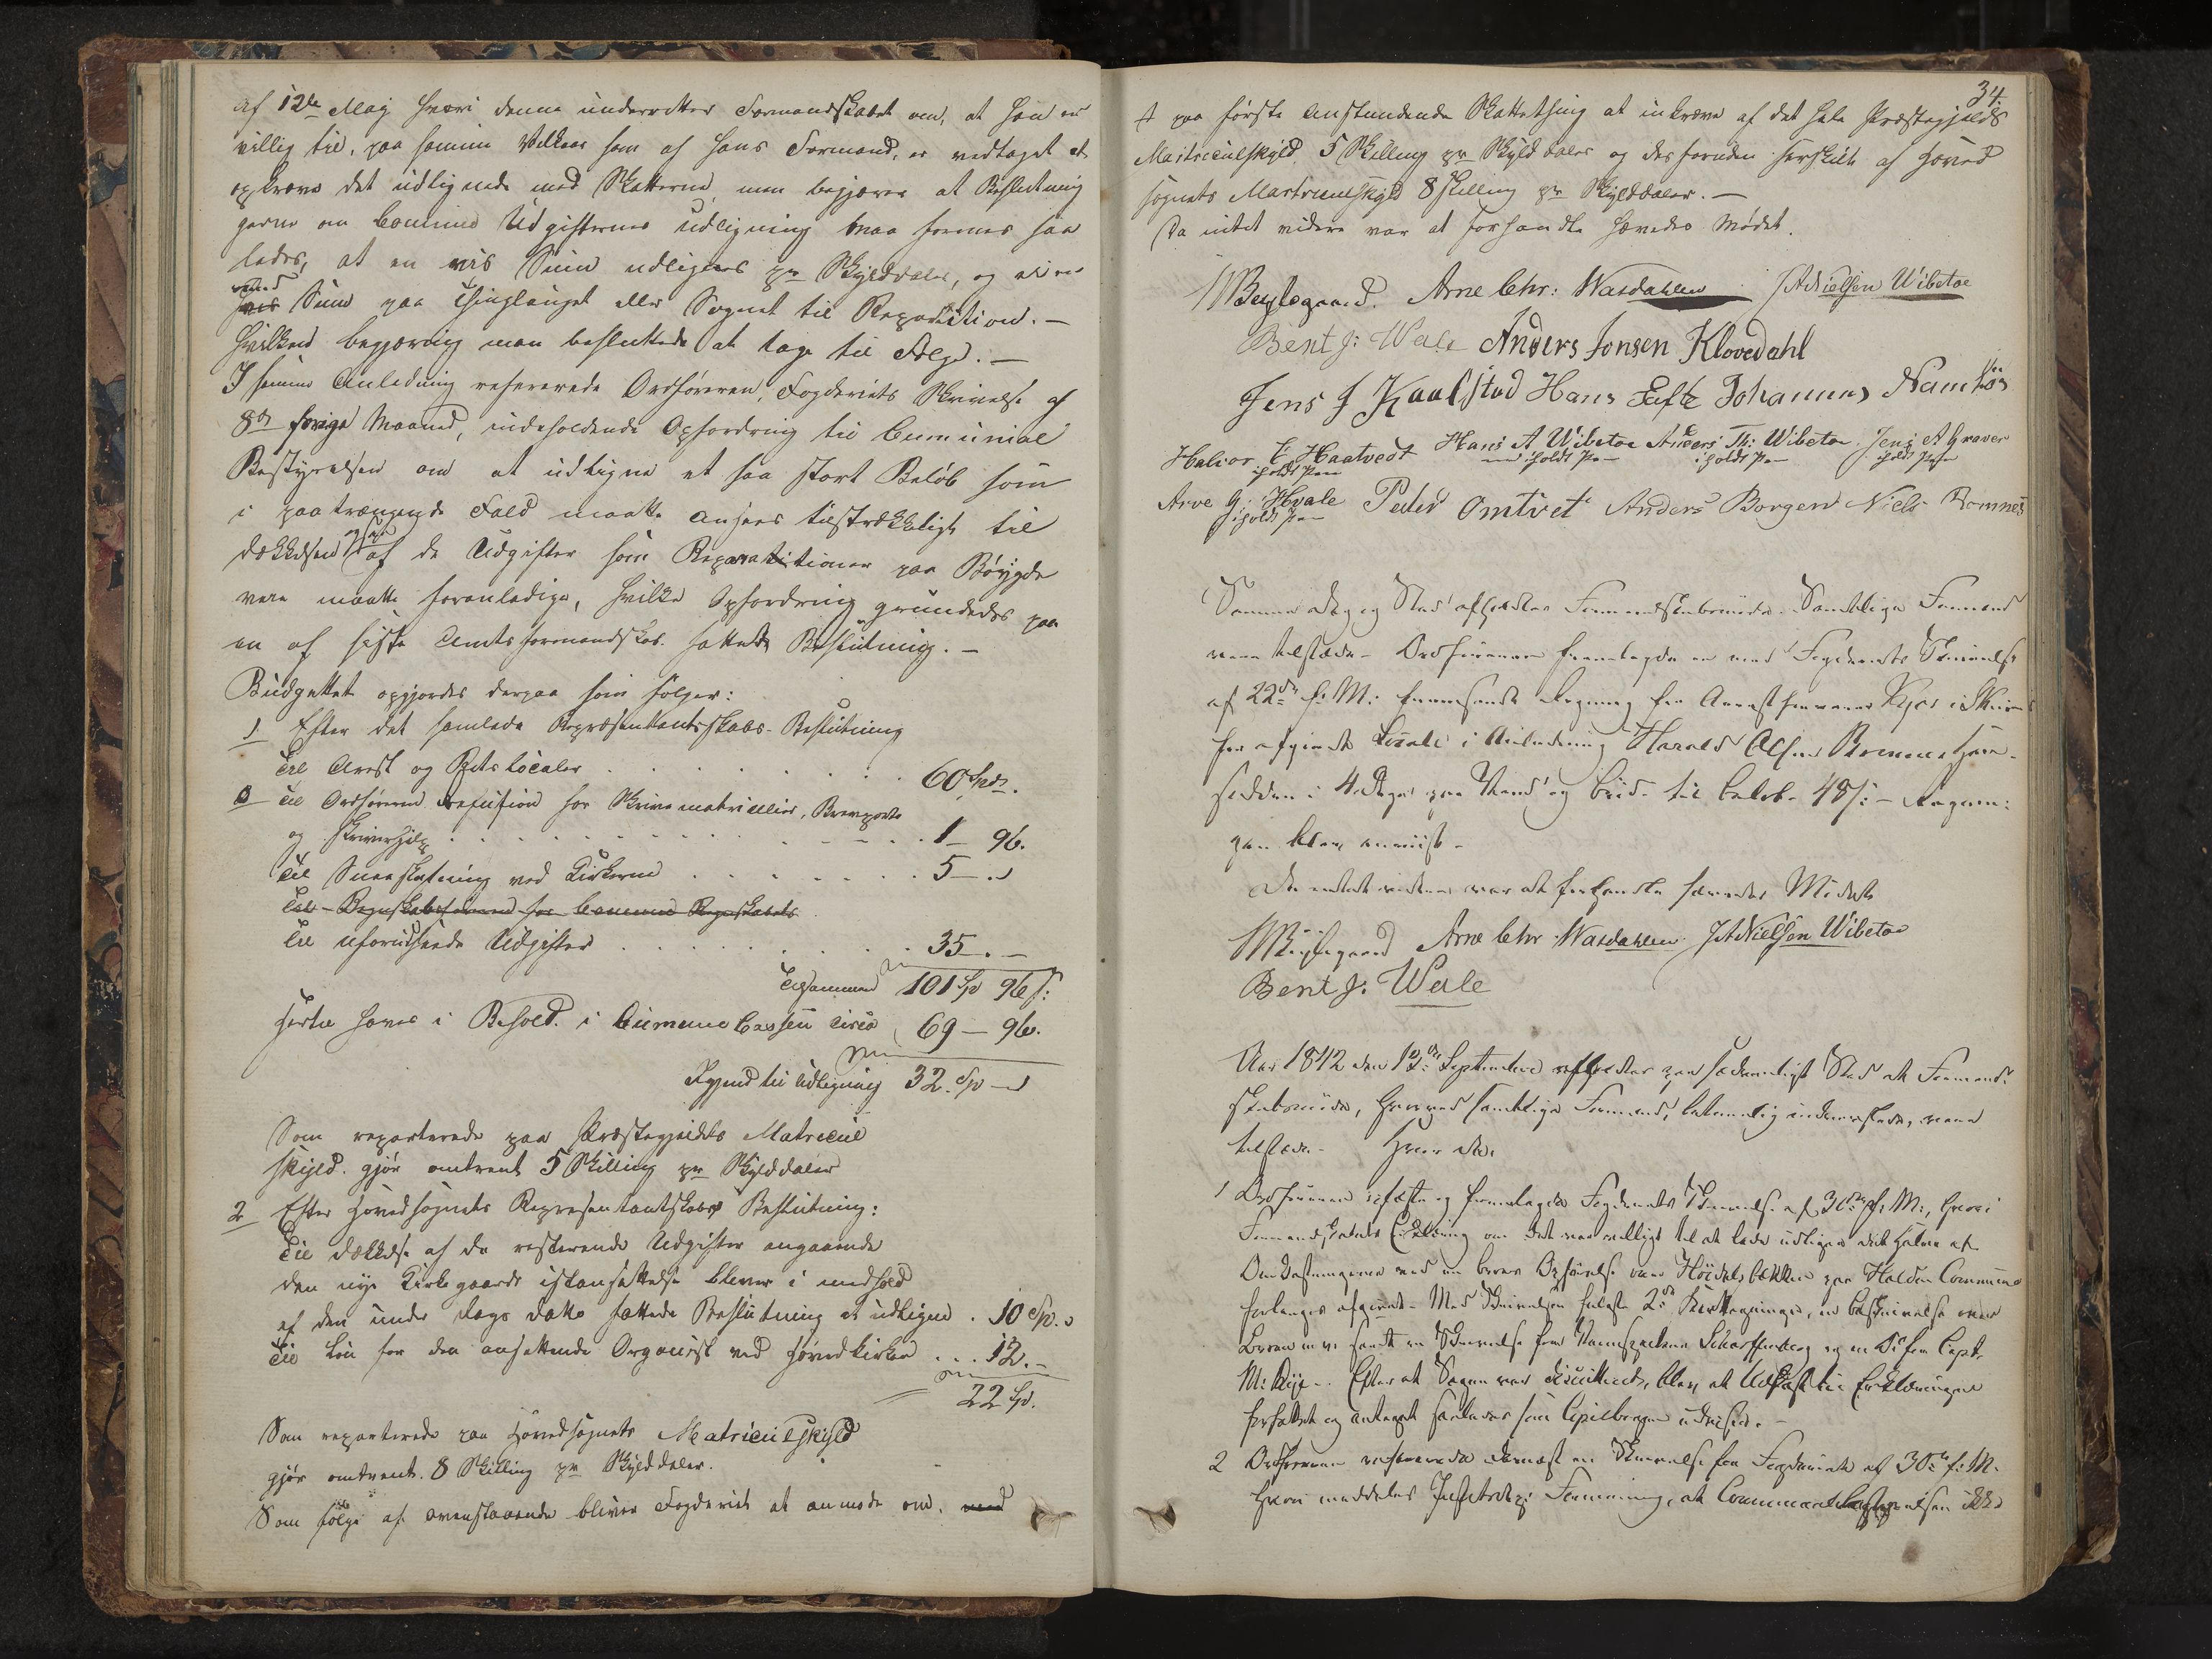 af 12te Maj hvori denne underretter Formandskabet om, at han er
villig til, paa samme Vilkaar som af hans Formand, er vedtaget at
opkræve det udlignede med Skatterne, men begjærer at Beslutnin
gerne om Commune Udgifternes Udligning maa formes saa
ledes, at en vis Sum udlignes pr Skylddaler, og ei en
vis Sum paa Thinglauget eller Sognet til Repartition. —
Hvilken begjæring man besluttede at tage til Følge. —
I samme Anledning refererede Ordføreren, Fogderiets Skrivelse af
8de forige Maaned, indeholdende Opfordring til Communal
Bestyrelsen om at udligne et saa stort Beløb som
i paatrængende Fald maatte ansees tilstrækkeligt til
Dækkelsen af de Udgifter som Reparationer paa Bøigde
veie maatte foranledige, hvilke Opfordring grundedes paa
en af sidste Amtsformandskab fattede Beslutning. —
Budgettet opgjordes derpaa som følger:
1 Efter det samlede Repræsentantskabs-Beslutning
Til Arest og Rets Localer . . . . 60 Spd.
Til Ordføreren Refusion for Skrivematrialier, Brevporto
og Skriverhjelp . . . . 1 – 96.
Til Sneeskufning ved Kirkerne . . . . 5 – „
Til Regnskabsføreren for Commune Regnskabets
Til uforudseede Udgifter . . . . 35 . –
Tilsammen 101 Sp 96 s:
Hertil haves i Behold. i Commune Cassen circa 69 – 96.
Igjend til Udligning 32. Sp – „
Som reparterede paa Præstegjeldets Matricul
skyld. gjør omtrent 5 Skilling pr Skylddaler
2 Efter Hovedsognets Repræsentantskabs Beslutning:
Til Dækkelse af de resterende Udgifter angaaende
den nye Kirkegaards istandsættelse blever i medhold
af den under Dags Dato fattede Beslutning at udligne . 10 Sp. „
Til Løn for den ansættende Organist ved Hovedkirken . . . 12. –
22 Sp.
Som reparterede paa Hovedsognets Matriculskyld
gjør omtrent. 8 Skilling pr Skylddaler.
Som følge af ovenstaaende bliver Fogderiet at anmode om, med
34.
paa første Anstundende Skattething at inkræve af det hele Præstegjelds
Matriculskyld 5 Skilling pr Skylddaler og desforuden særskilt af Hoved
sognets Matriculskyld 8 Skilling pr Skylddaler. —
Da intet videre var at forhandle hævedes Mødet.
Arne Chr: Wasdahlen JANielsen Wibetoe
Bent J: Wale Anders Jonsen Klovedahl
Jens J Kaalstad Hans Johannes Namløs
Halvor E Haatvedt Hans A Wibetoe Anders Th: Wibetoe Jens A Graver
iholdt Pen iholdt Pen iholdt Pen iholdt Pen
Arve G: Hvale Peder Omtvet Anders Borgen Niels Romnes
iholdt Pen
Samme Dag og Sted afholdtes Formandskabsmøde. Samtlige Formænd
vare tilstæde – Ordføreren fremlagde en med Fogderiets Skrivelse
af 22de f: M: fremsendt Regning fra Arrestforvarer Kjos i Skien
for afgivet Locale i Anledning Harald Olsens Romnes Hen-
sidden i 4 Dage paa Vand og Brød til Beløb 48 s: – Regnin-
gen blev anviist –
Da intet videre var at forhandle hævedes Mødet
Arne Chr Wasdahlen JANielsen Wibetoe
Bent J: Wale
Aar 1842 den 12te September afholdtes paa sædvanligt Sted et Formands
skabsmøde, hvorved samtlige Formænd, betimelig underrettede, vare
tilstæde. Hvor da
1 Ordføreren oplæste og fremlagde Fogderiets Skrivelse af 30de f: M:, hvori
Formandskabets Erklæring om det var villigt til at lade udligne det halve af
Omkostningerne ved en Broes Opførelse over Høidalsbækken paa Holden Commune
forlanges afgivet. Med Skrivelsen fulgte 2de Karttegninger, en Beskrivelse over
Broen m. v: samt en Skrivelse fra Scharffenberg og en Do fra Capt.
M: Kije. Efter at Sagen var discuteret, blev et Udkast til Erklæringen
forfattet og antaget saaledes som Copibogen udviser. –
2 Ordføreren refererede dernæst en Skrivelse fra Fogderiet af 30te f: M.
hvori meddeles Justitsdep: Formening, at Communebestyrelsen ikke